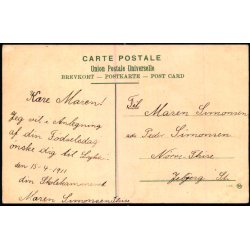 CARTE POSTALE
Union Postale Universelle
BREVKORT — POSTKARTE — POST CARD
Kære Maren!
Jeg vil i Anledning
af din Fødselsdag
ønske dig til Lykke
den 15-4-1911
din Skolekammerat
Maren Simonsen
Til
Maren Simonsen
Peder Simonsen
Nørre
St.